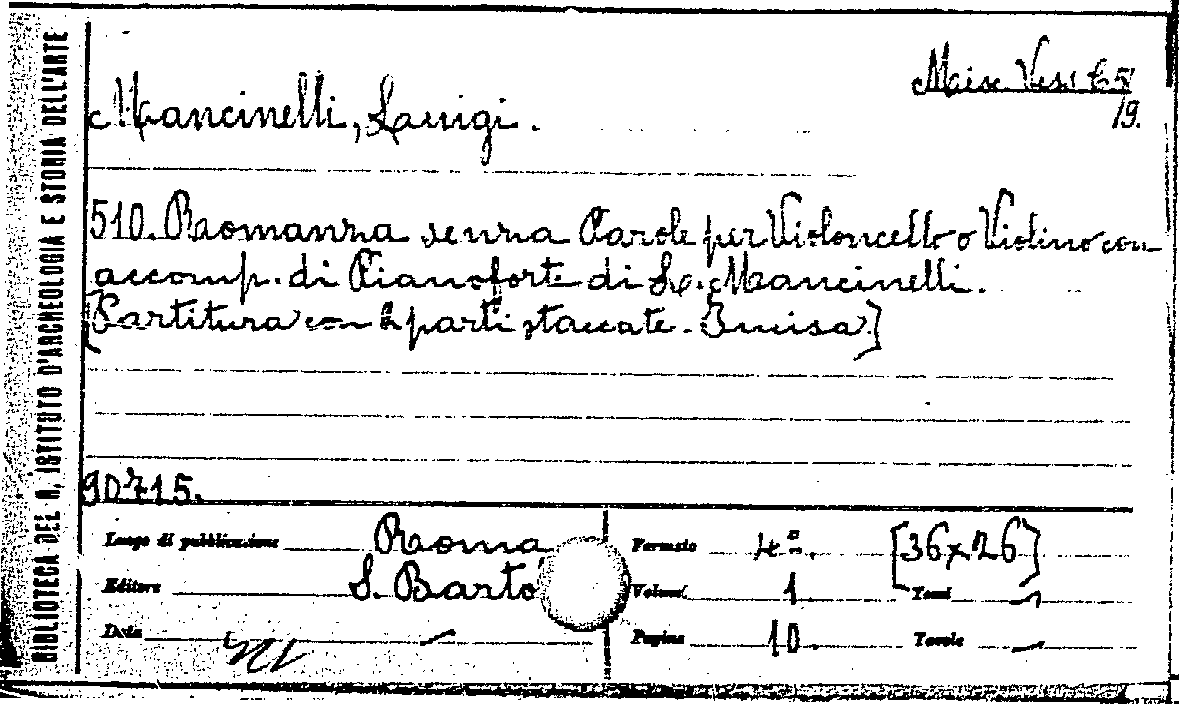 BIBLIOTECA DEL R. ISTITUTO D'ARCHEOLOGIA E STORIA DELL'ARTE
Misc. Vess
19.
Mancinelli, Luigi.
510. Romanza senza Parole per Violoncello o Violino con
accomp. di Pianoforte di L. Mancinelli.
[Partitura con 2 parti staccate. Incisa]
90715.
Luogo di pubblicazione Roma
Editore S. Barto
Data –
Formato 4º. [36x26]
Volumi 1 Tomi –
Pagine 10. Tavole –